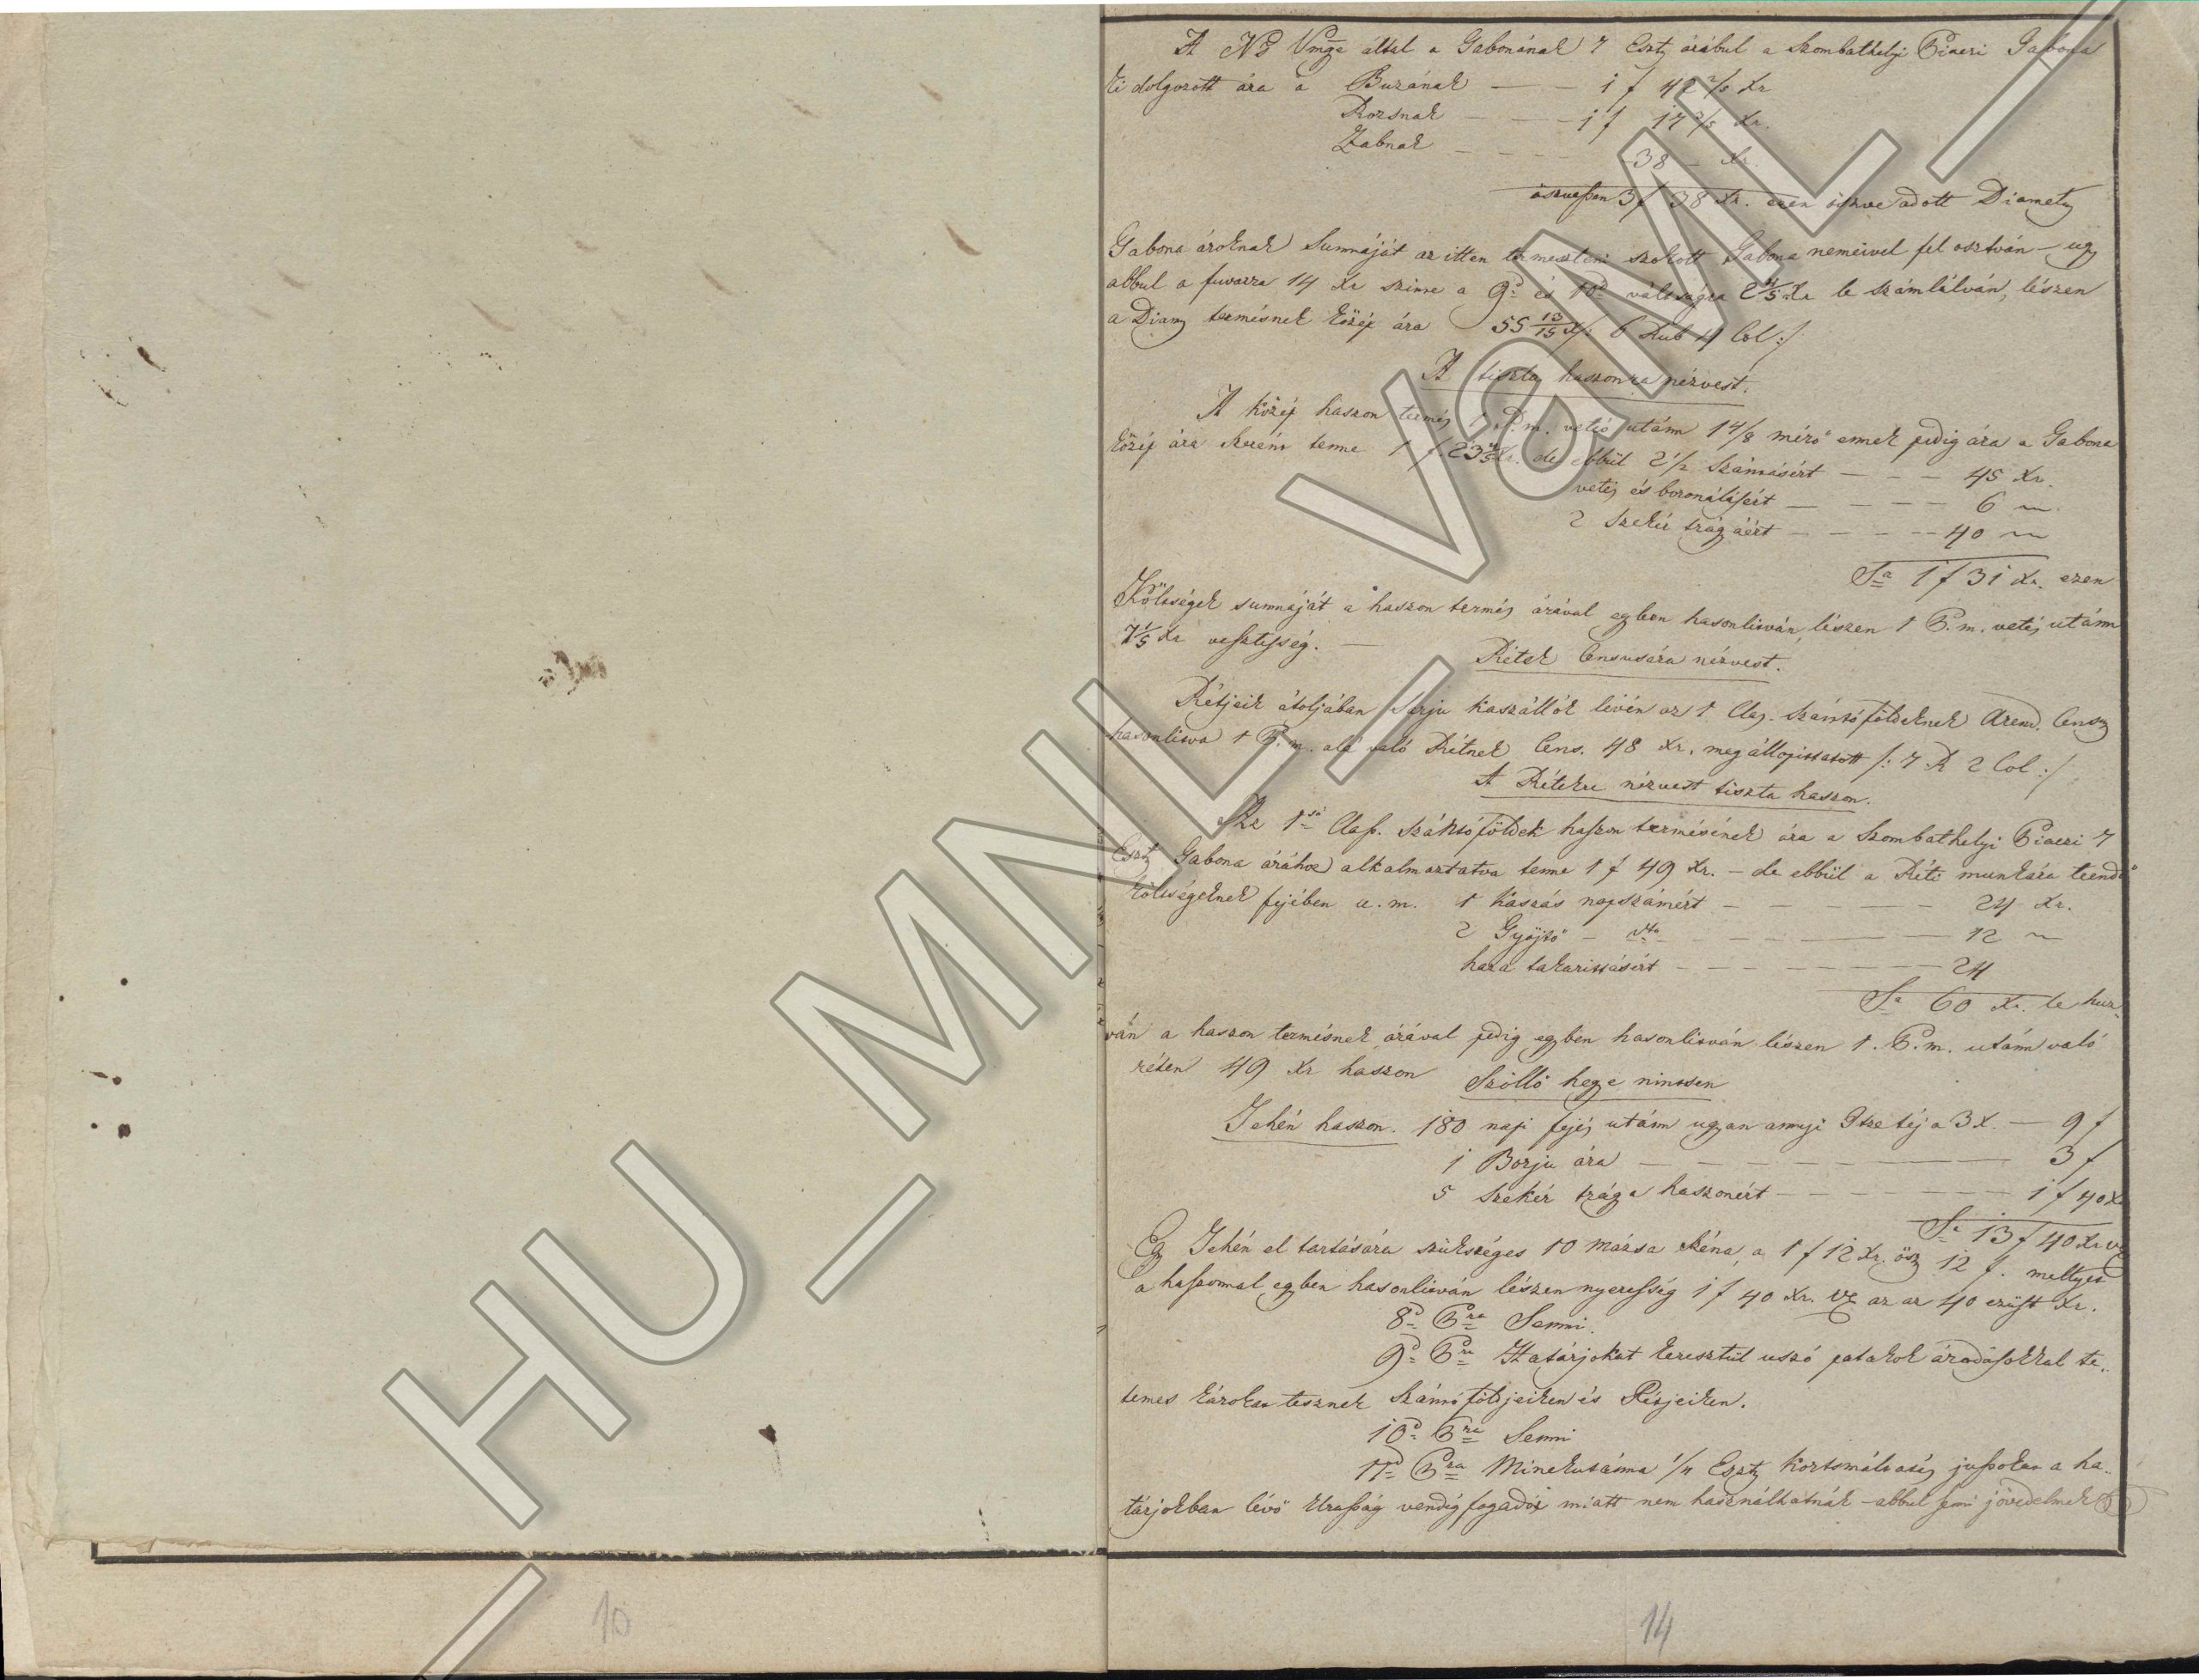 A Ns Vmge által a Gabonának 7 Eszt. árábul a Szombathelyi Piaczi Gabona
ki dolgozott ára a Buzának — — 1 f 42 2/5 Xr
Rozsnak — — — 1 f 17 3/5 Xr.
Zabnak — — — — 38 — Xr.
öszvessen 3 f 38 Xr. ezen öszve adott Diametz
Gabona ároknak Summáját az itten termeszteni szokott Gabona nemeivel fel osztván — ugy
abbul a fuvarra 14 Xr szinte a 9d és 10d váltságra 2 4/5 Xr le számlálván, lészen
a Diam termésnek közép ára 55 13/15 Xr /: 6 Rub 4 Col :/
A tiszta haszonra nézvest.
A közép haszon termés 1 P. m. vetés utánn 1 4/8 mérő ennek pedig ára a Gabona
közép ára szerént tenne 1 f 23 4/5 Xr. de ebbül 2 1/2 Szántásért — — — 45 Xr.
vetés és boronálásért — — — — 6 "
2 Szekér trágyáért — — — — 40 "
Sa 1 f 31 Xr. ezen
Költségek summáját a haszon termés árával egyben hasonlitván, lészen 1 P. m. vetés utánn
7 1/5 Xr vesztesség. —
Rétek Censusára nézvest.
Rétjeik átoljában Sarju kaszállók lévén az 1. Clas. Szántóföldeknek Arend. Cens
hasonlitva 1 P. m. alá való Rétnek Cens. 48 Xr. megállapittatott /: 7 R 2 Col :/
A Rétekre nézvest tiszta haszon.
Az 1ső Class. Szántóföldek haszon termésének ára a Szombathelyi Piaczi 7
Eszt Gabona árához alkalmaztatva tenne 1 f 49 Xr. — de ebbül a Réti munkára teendő
költségeknek fejében u. m. 1 Kaszás napszámért — — — — — 24 Xr.
2 Gyüjtő — dto — — — — — 12 "
haza takarittásért — — — — — 24
Sa 60 Xr. le huz-
ván a haszon termésnek árával pedig egyben hasonlitván lészen 1. P. m. utánn való
réten 49 Xr haszon
Szölló hegye nintsen
Tehén haszon. 180 napi fejés utánn ugyan annyi Itze téj a 3 X. — 9 f
1 Borju ára — — — — — — 3 f
5 Szekér trágya haszonért — — — — — 1 f 40 X
Sa 13 f 40 Xr
Egy Tehén el tartására szükséges 10 mázsa széna, a 1 f 12 Xr. ösz 12 f. mellyet
a haszonnal egyben hasonlitván lészen nyeresség 1 f 40 Xr. az az 40 ezüst Xr.
8d Pra Semmi.
9d Pra Határjokat keresztül uszó patakok áradásokkal te-
temes károkat tesznek Szántó földjeiken és Rétjeiken.
10d Pra Semmi
11d Pra Minekutánna 1/4 Eszt. kortsmáltatás jussokat a ha-
tárjokban lévő Urasság vendég fogadói miatt nem használhatnák — abbul semi jövedelmek
10
14
HU_MNL_VaML_